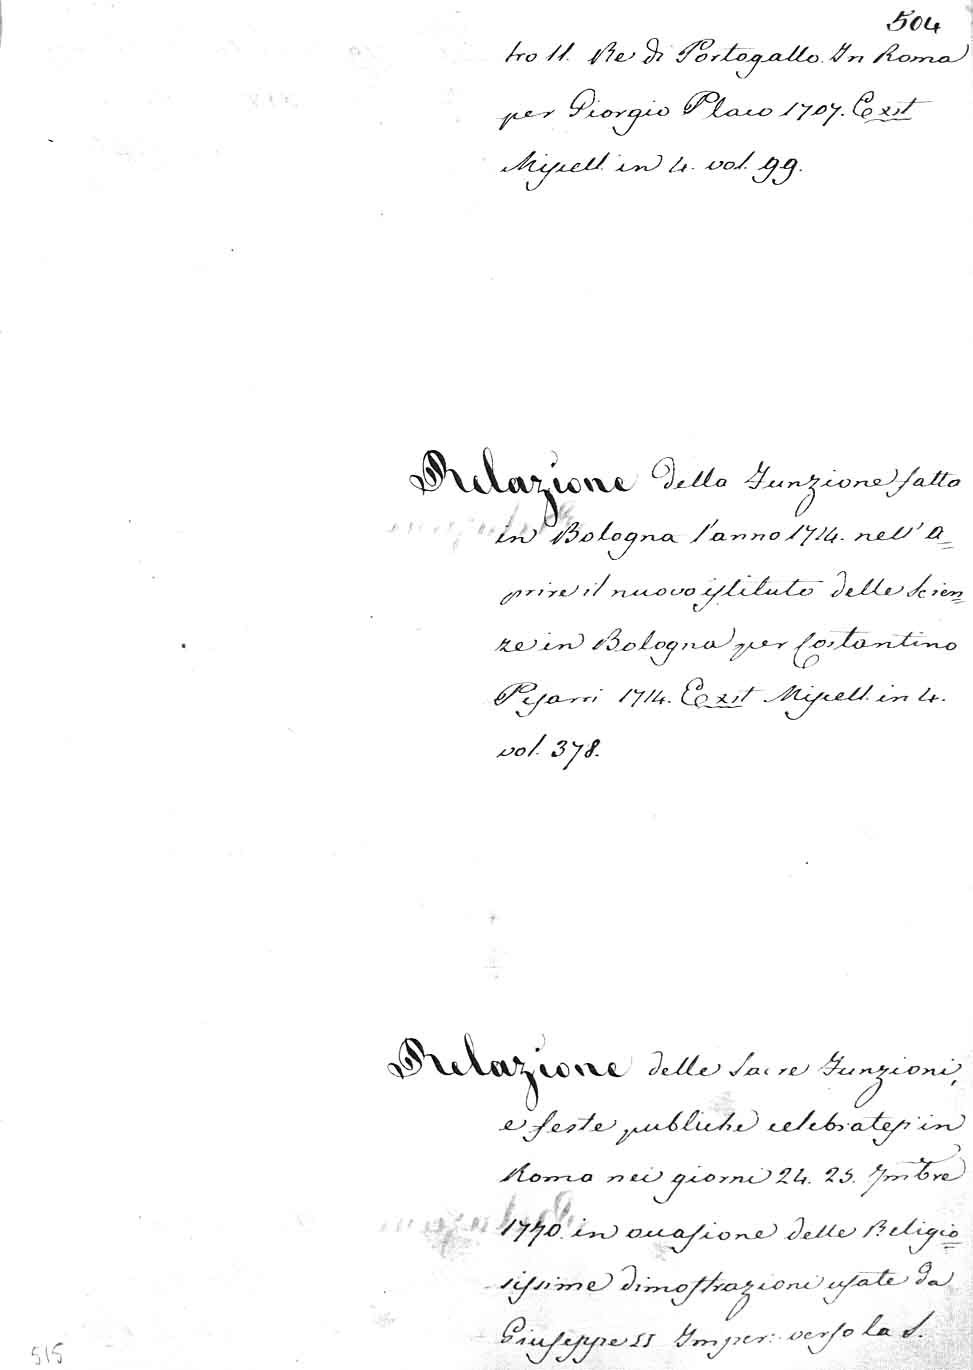 504
tro II. Re di Portogallo. In Roma
per Giorgio Placo 1707. Exst
Miscell. in 4. vol. 99.
Relazione della Funzione fatta
in Bologna l'anno 1714. nell' a=
prire il nuovo istituto delle Scien=
ze in Bologna per Costantino
Pisarri 1714. Exst Miscell. in 4.
vol. 378.
Relazione delle Sacre Funzioni,
e feste publiche celebratesi in
Roma nei giorni 24. 25. 7mbre
1770. in occasione delle Religio=
sissime dimostrazioni usate da
Giuseppe II Imper: verso la S.
515